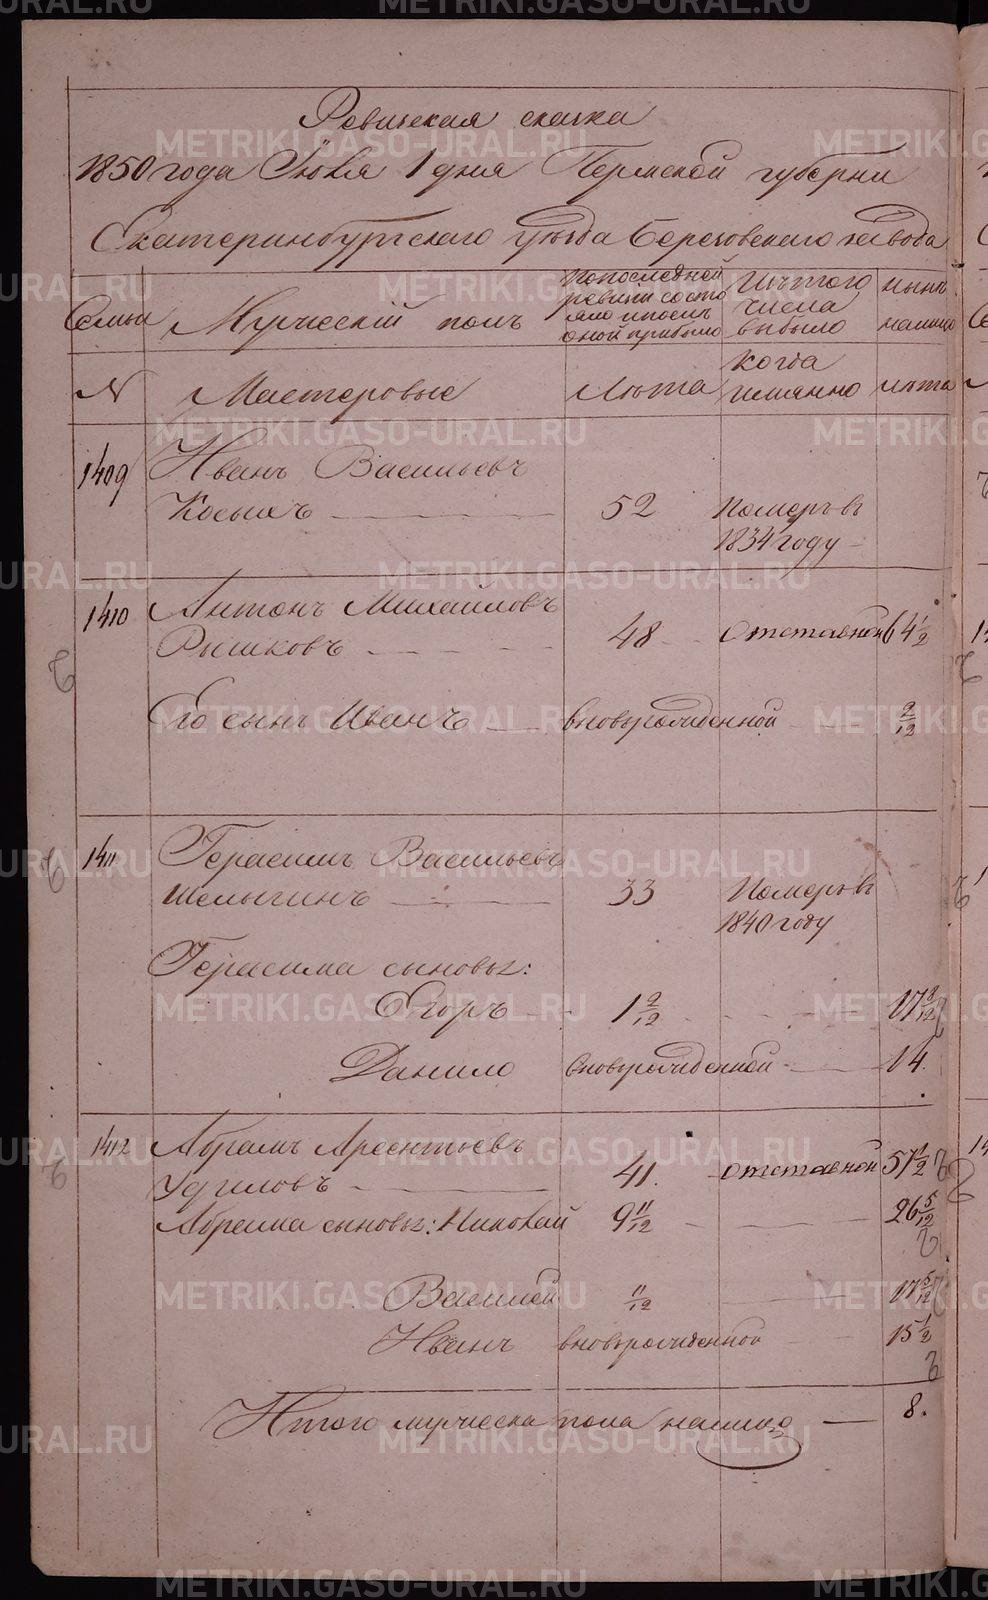 Ревизская сказка
1850 года Июля 1 дня Пермской губернии
Екатеринбургскаго уѣзда Березовскаго завода
Семьи
Мужескій полъ
По последней ревизіи состояло и после оной прибыло
Изъ того числа выбыло
нынѣ налицо
№
Мастеровые
Лѣта
когда имянно
лѣта
1409
Иванъ Васильевъ
Косыхъ — 52 Померъ въ
1834 году
1410
Антонъ Михайловъ
Рышковъ — 48 Отставной 64 1/2
Его сынъ Иванъ — вновьрожденной — 2/12
1411
Герасимъ Васильевъ
Шелыгинъ — 33 Померъ въ
1840 году
Герасима сыновья:
Егоръ — 1 2/12 — 17 2/12
Данило вновьрожденной — 14.
1412
Абрамъ Арсентьевъ
— 41. отставной 57 1/2
Абрама сыновья: Николай 9 11/12 — 26 5/12
Василей 11/12 — 17 5/12
Иванъ вновьрожденной — 15 1/2
Итого мужеска пола налицо — 8.
METRIKI.GASO-URAL.RU